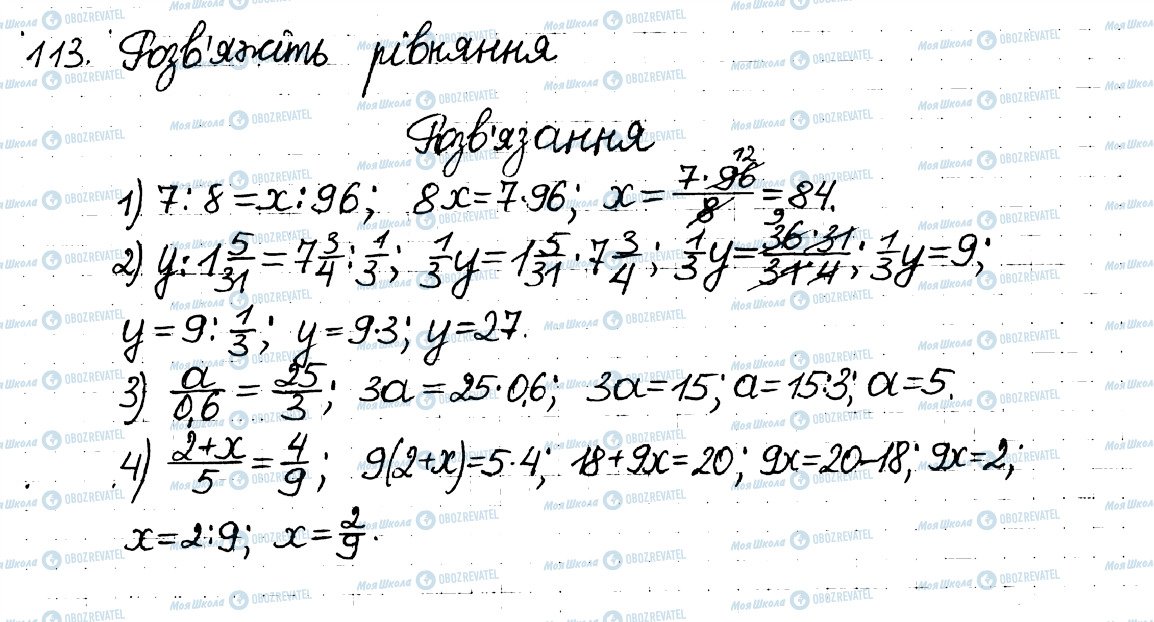 113. Розв'яжіть рівняння
Розв'язання
1) 7 : 8 = x : 96; 8x = 7·96; x = (7·96)/8 = 84. (12)
2) y : 1 5/31 = 7 3/4 : 1/3; 1/3 y = 1 5/31 · 7 3/4; 1/3 y = (36·31)/(31·4); 1/3 y = 9; (9)
y = 9 : 1/3; y = 9·3; y = 27.
3) a/0,6 = 25/3; 3a = 25·0,6; 3a = 15; a = 15:3; a = 5.
4) (2+x)/5 = 4/9; 9(2+x) = 5·4; 18 + 9x = 20; 9x = 20-18; 9x = 2;
x = 2:9; x = 2/9.
МояШкола OBOZREVATEL